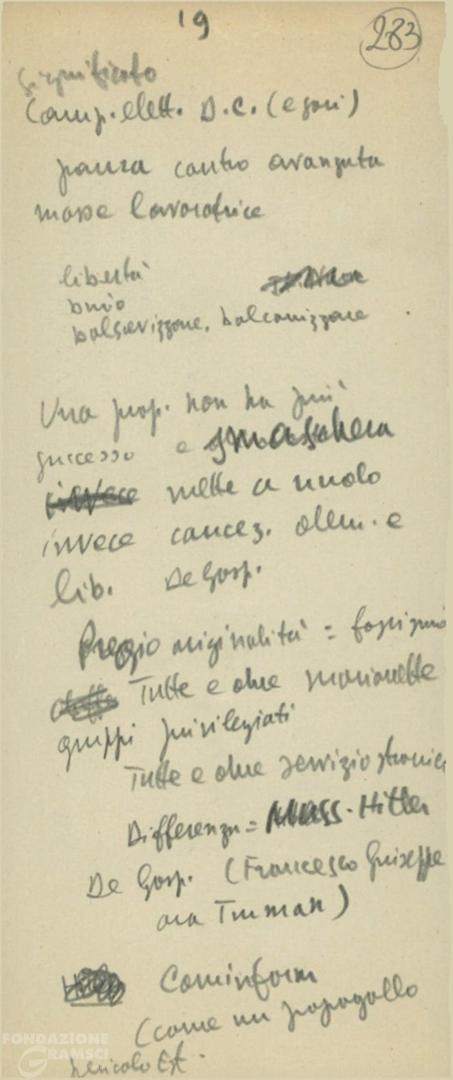 19
283
Significato
Camp. elett. D.C. (e soci)
paura contro avanzata
masse lavoratrice
libertà
buio
bolscevizzone, balcanizzone
Una prop. non ha più
successo e smaschera
invece mette a nudo
invece concez. dem. e
lib. De Gasp.
Pregio originalità = fascismo
Tutte e due marionette
gruppi privilegiati
Tutte e due servizio stranier
Differenza = Muss. - Hitler
De Gasp. (Francesco Giuseppe
ora Truman)
Cominform
(come un papagallo
pericolo Est.
FONDAZIONE
GRAMSCI